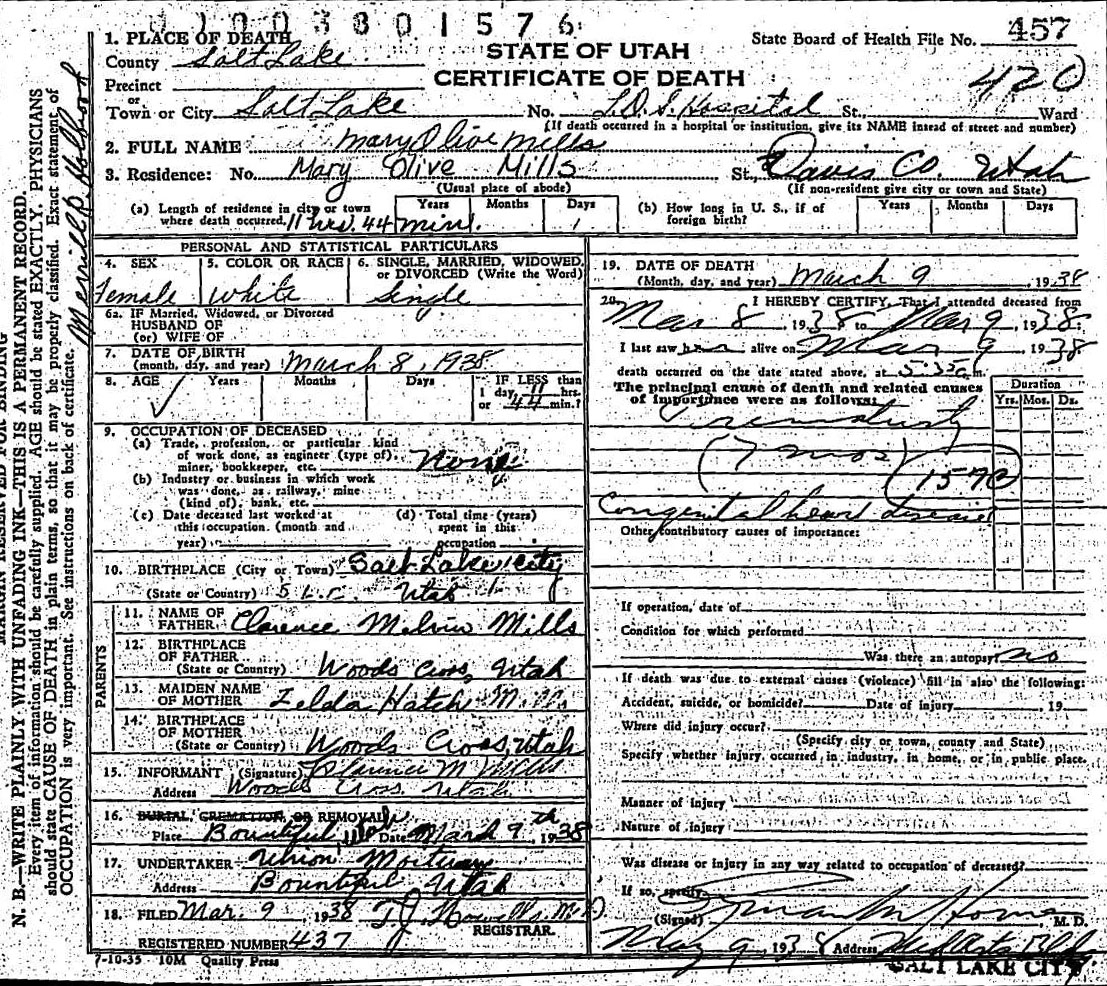 01003801576
457
1. PLACE OF DEATH
County Salt Lake
STATE OF UTAH
CERTIFICATE OF DEATH
State Board of Health File No.
420
Precinct
or
Town or City Salt Lake No. L.D.S. Hospital St., Ward
(If death occurred in a hospital or institution, give its NAME insead of street and number)
2. FULL NAME Mary Olive Mills
3. Residence: No. Mary Olive Mills St., Davis Co. Utah
(Usual place of abode) (If non-resident give city or town and State)
(a) Length of residence in city or town where death occurred. 11 hrs. 44 min. Years Months Days 1
(b) How long in U. S., if of foreign birth? Years Months Days
PERSONAL AND STATISTICAL PARTICULARS
4. SEX Female
5. COLOR OR RACE White
6. SINGLE, MARRIED, WIDOWED, or DIVORCED (Write the Word) Single
6a. IF Married, Widowed, or Divorced
HUSBAND OF
(or) WIFE OF
7. DATE OF BIRTH
(month, day, and year) March 8, 1938
8. AGE Years Months Days IF LESS than
1 day, 11 hrs.
or 44 min.?
9. OCCUPATION OF DECEASED
(a) Trade, profession, or particular kind
of work done, as engineer (type of),
miner, bookkeeper, etc. None
(b) Industry or business in which work
was done, as railway, mine
(kind of), bank, etc.
(c) Date deceased last worked at
this occupation. (month and
year)
(d) Total time (years)
spent in this
occupation
10. BIRTHPLACE (City or Town) Salt Lake City
(State or Country) S.L.C. Utah
PARENTS
11. NAME OF
FATHER Clarence Melvin Mills
12. BIRTHPLACE
OF FATHER
(State or Country) Woods Cross, Utah
13. MAIDEN NAME
OF MOTHER Zelda Hatch Mills
14. BIRTHPLACE
OF MOTHER
(State or Country) Woods Cross, Utah
15. INFORMANT (Signature) Clarence M Mills
Address Woods Cross Utah
16. BURIAL, CREMATION, OR REMOVAL
Place Bountiful, Utah Date March 9th, 1938
17. UNDERTAKER Union Mortuary
Address Bountiful Utah
18. FILED Mar. 9, 1938 T.J. Howells M.D.
REGISTRAR.
REGISTERED NUMBER 437
7-10-35 10M Quality Press
19. DATE OF DEATH
(Month, day, and year) March 9 1938
20. I HEREBY CERTIFY, That I attended deceased from
Mar 8, 1938 to Mar 9, 1938
I last saw her alive on Mar 9 1938
death occurred on the date stated above, at 5:35 a.m.
The principal cause of death and related causes
of importance were as follows:
Duration
Yrs. Mos. Ds.
Prematurity
(7 mos)
157
Congenital heart disease
Other contributory causes of importance:
If operation, date of
Condition for which performed
Was there an autopsy? no
If death was due to external causes (violence) fill in also the following:
Accident, suicide, or homicide? Date of injury, 19
Where did injury occur?
(Specify city or town, county and State)
Specify whether injury occurred in industry, in home, or in public place.
Manner of injury
Nature of injury
Was disease or injury in any way related to occupation of deceased?
If so, specify
(Signed) M. D.
9, 1938 Address Med Arts Bldg
SALT LAKE CITY
MARGIN RESERVED FOR BINDING
N. B.—WRITE PLAINLY WITH UNFADING INK—THIS IS A PERMANENT RECORD.
Every item of information should be carefully supplied. AGE should be stated EXACTLY. PHYSICIANS
should state CAUSE OF DEATH in plain terms, so that it may be properly classified. Exact statement of
OCCUPATION is very important. See instructions on back of certificate.
Merrill P Holbrook